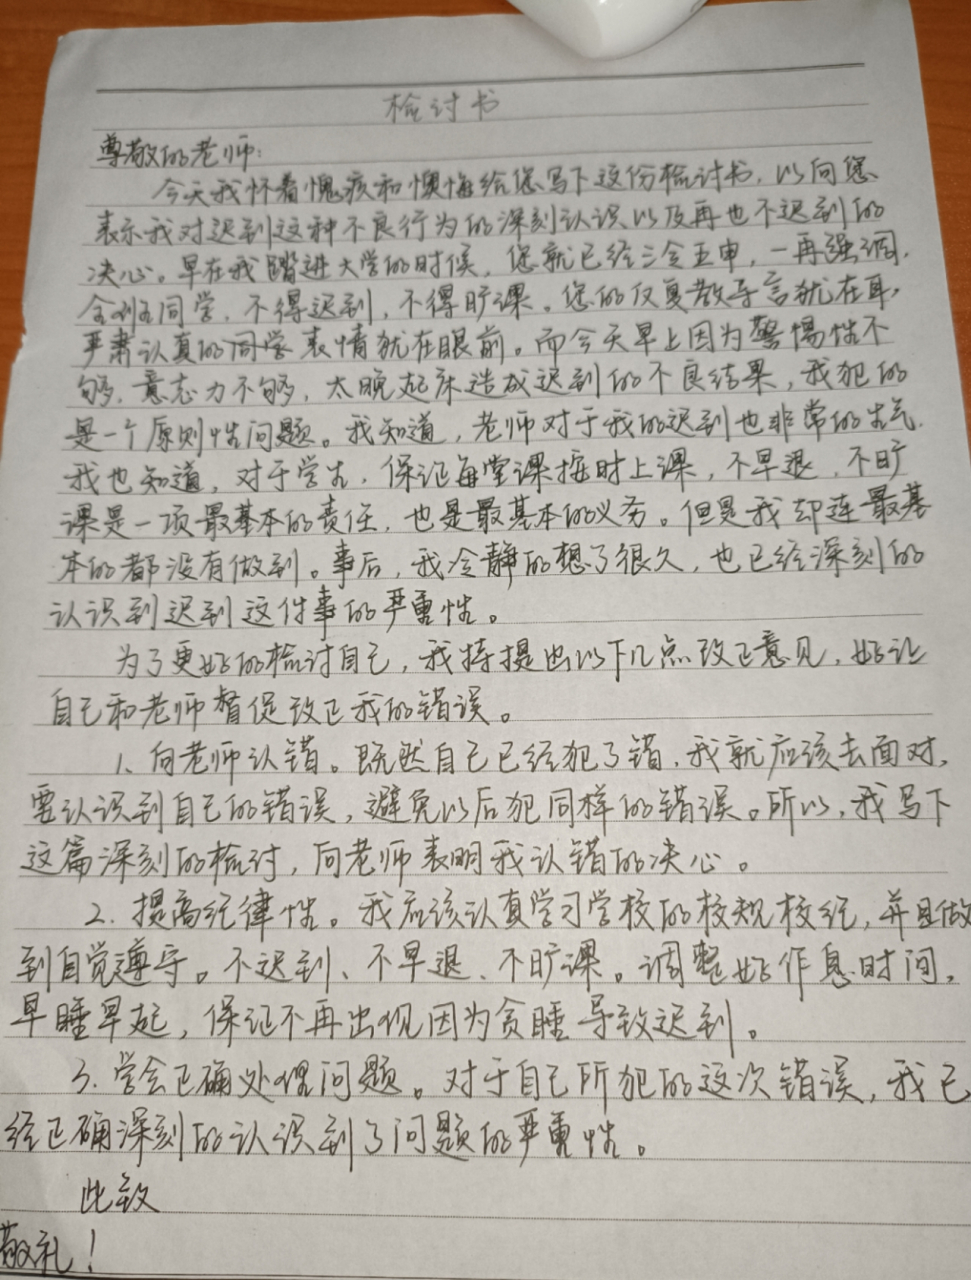 检讨书
尊敬的老师:
今天我怀着愧疚和懊悔给您写下这份检讨书,以向您
表示我对迟到这种不良行为的深刻认识以及再也不迟到的
决心。早在我踏进大学的时候,您就已经三令五申,一再强调,
全班同学,不得迟到,不得旷课。您的反复教导言犹在耳,
严肃认真的同学表情犹在眼前。而今天早上因为警惕性不
够,意志力不够,太晚起床造成迟到的不良结果,我犯的
是一个原则性问题。我知道,老师对于我的迟到也非常的生气.
我也知道,对于学生,保证每堂课按时上课,不早退,不旷
课是一项最基本的责任,也是最基本的义务。但是我却连最基
本的都没有做到。事后,我冷静的想了很久,也已经深刻的
认识到迟到这件事的严重性。
为了更好的检讨自己,我特提出以下几点改正意见,好让
自己和老师督促改正我的错误。
1、向老师认错。既然自己已经犯了错,我就应该去面对,
要认识到自己的错误,避免以后犯同样的错误。所以,我写下
这篇深刻的检讨,向老师表明我认错的决心。
2、提高纪律性。我应该认真学习学校的校规校纪,并且做
到自觉遵守。不迟到、不早退、不旷课。调整好作息时间,
早睡早起,保证不再出现因为贪睡导致迟到。
3、学会正确处理问题。对于自己所犯的这次错误,我已
经正确深刻的认识到了问题的严重性。
此致
敬礼!